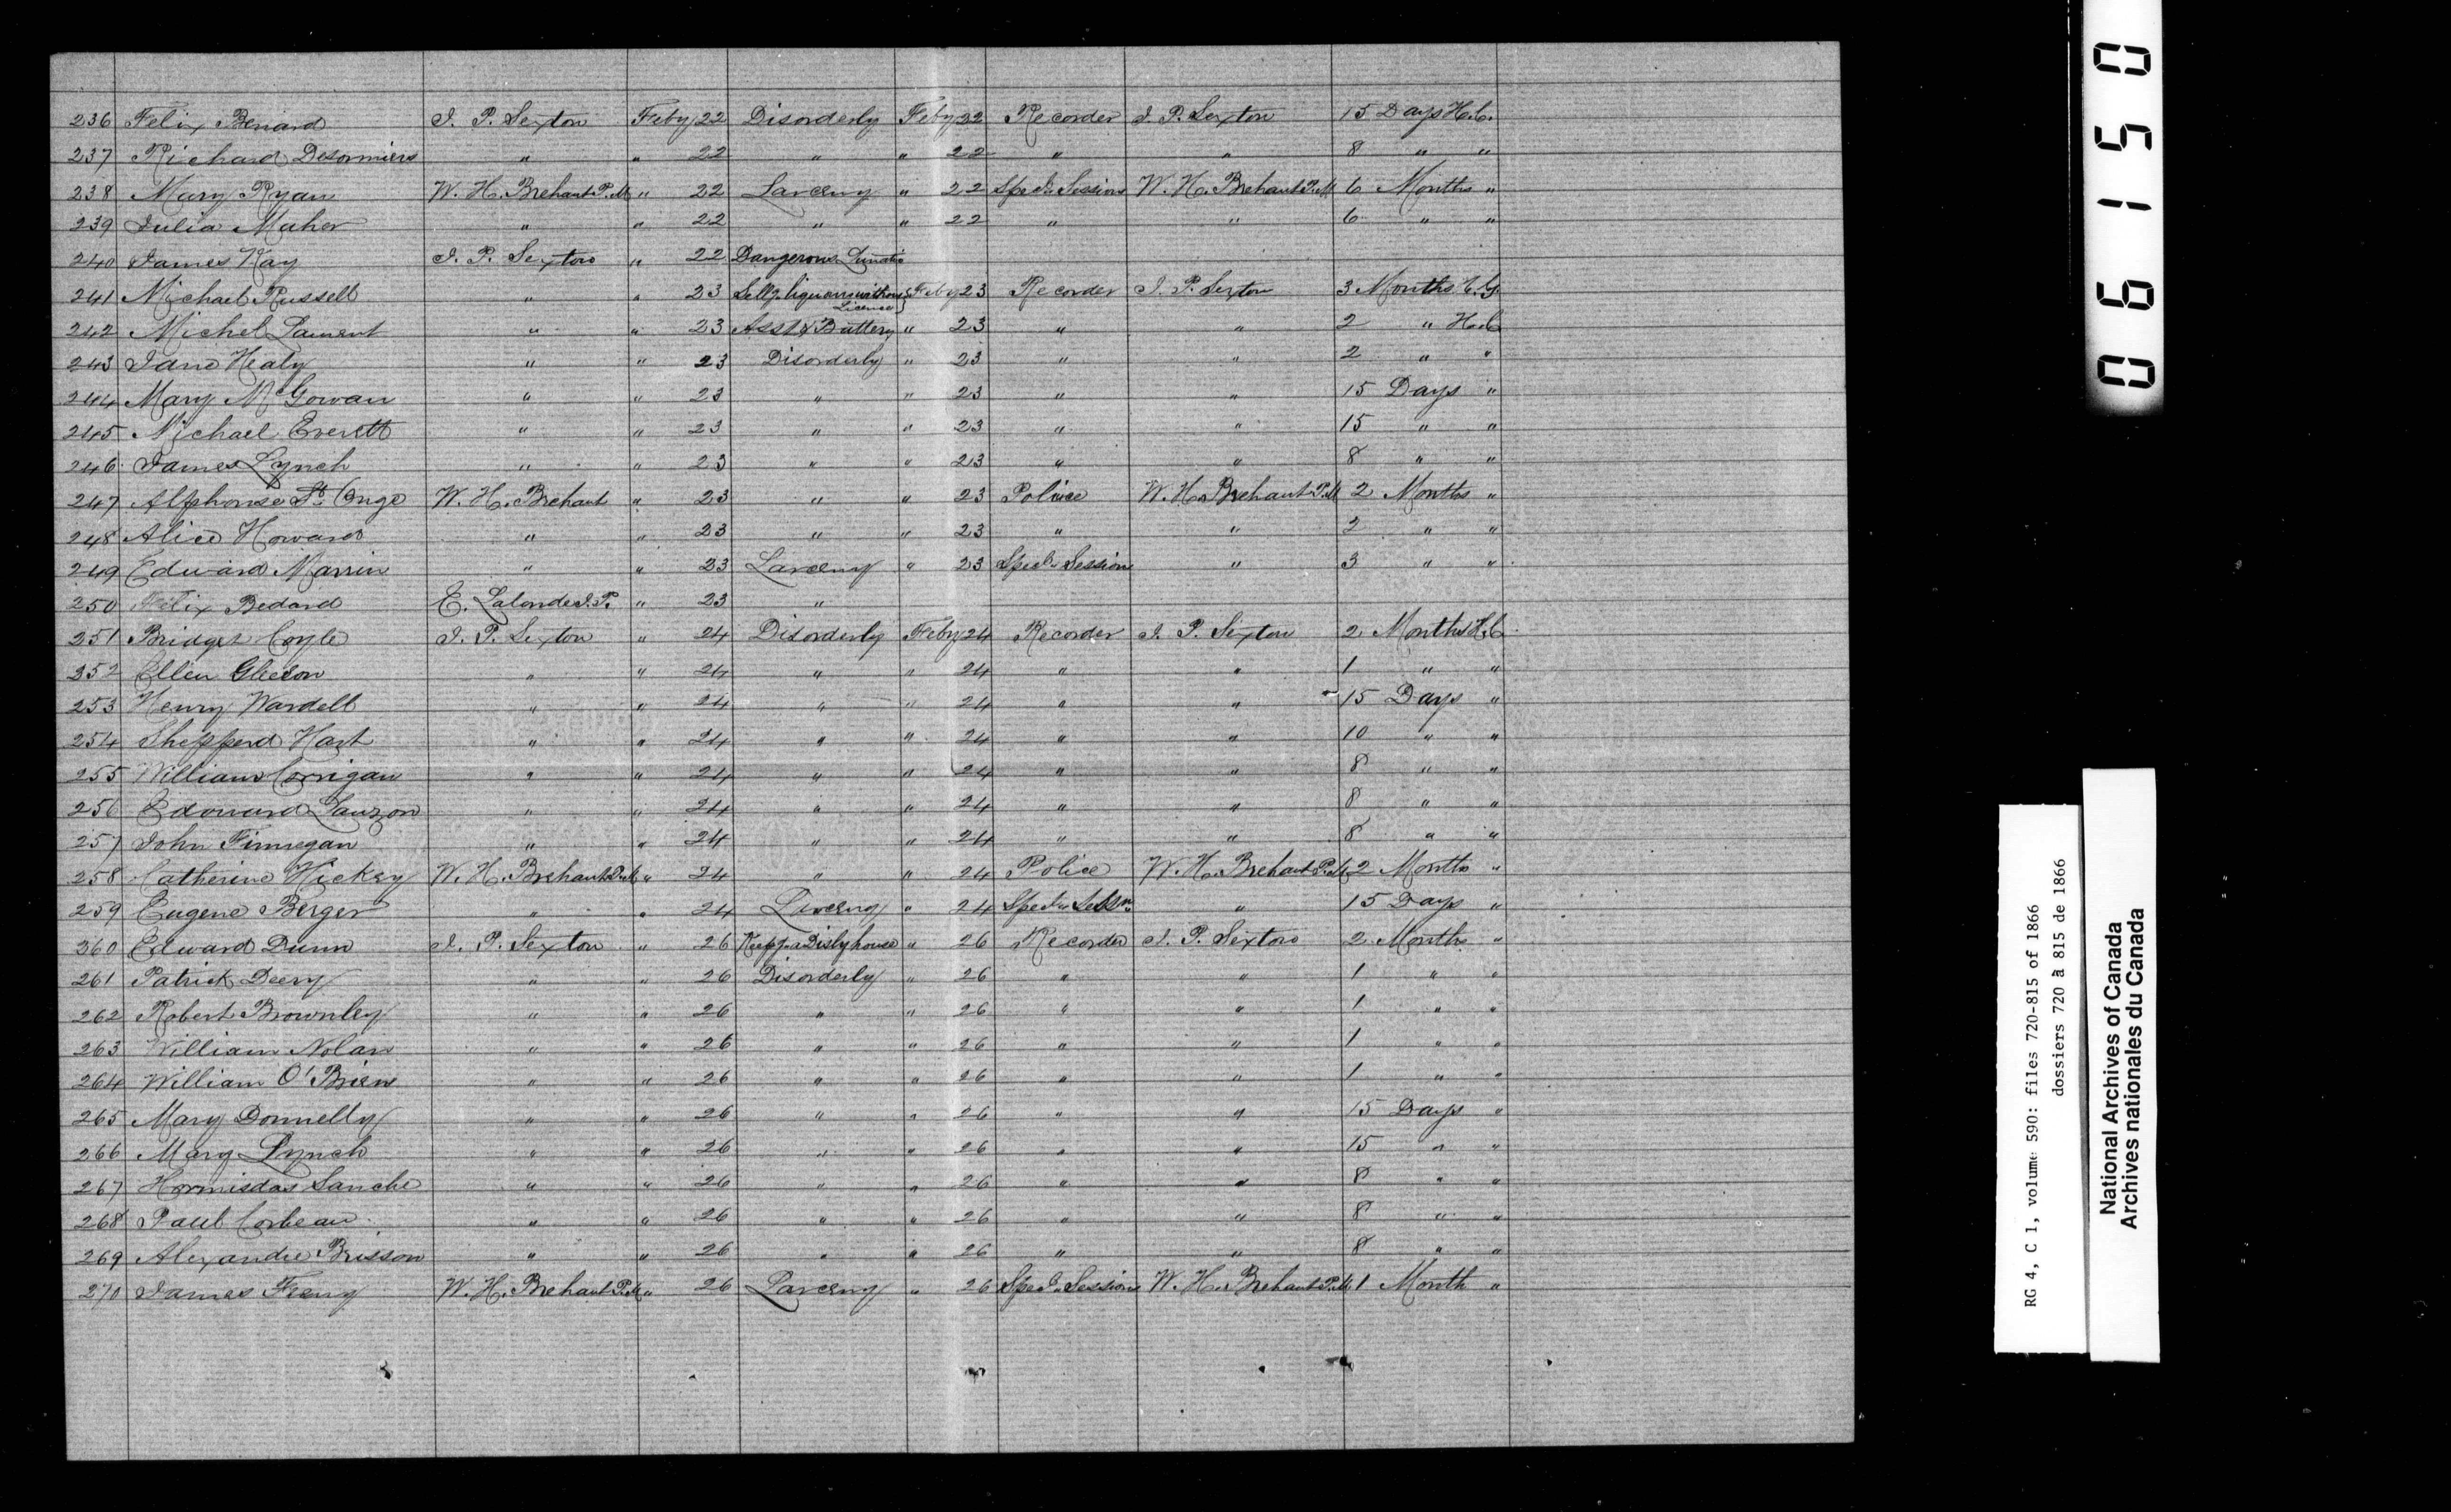 236 Felix Benard J. P. Sexton Feby 22 Disorderly Feby 22 Recorder J. P. Sexton 15 Days H.C.
237 Richard Desormiers " " 22 " " 22 " " 8 " "
238 Mary Ryan W. H. Brehaut P.M. " 22 Larceny " 22 Specl. Sessions W. H. Brehaut P.M. 6 Months "
239 Julia Maher " " 22 " " 22 " " 6 " "
240 James Kay J. P. Sexton " 22 Dangerous Lunatic
241 Michael Russell " " 23 Sellg. liquors without Licence } Feby 23 Recorder J. P. Sexton 3 Months C.G.
242 Michel Laurent " " 23 Asst & Battery " 23 " " 2 " H.C.
243 Jane Healy " " 23 Disorderly " 23 " " 2 " "
244 Mary McGowan " " 23 " " 23 " " 15 Days "
245 Michael Everett " " 23 " " 23 " " 15 " "
246 James Lynch " " 23 " " 23 " " 8 " "
247 Alphonse St. Onge W. H. Brehaut " 23 " " 23 Police W. H. Brehaut P.M. 2 Months "
248 Alice Howard " " 23 " " 23 " " 2 " "
249 Edward Marrin " " 23 Larceny " 23 Specl. Session " 3 " "
250 Felix Bedard E. Lalonde J.P. " 23 "
251 Bridget Coyle J. P. Sexton " 24 Disorderly Feby 24 Recorder J. P. Sexton 2 Months H.C.
252 Ellen Gleeson " " 24 " " 24 " " 1 " "
253 Henry Wardell " " 24 " " 24 " " 15 Days "
254 Shepperd Hart " " 24 " " 24 " " 10 " "
255 William Corrigan " " 24 " " 24 " " 8 " "
256 Edouard Lauzon " " 24 " " 24 " " 8 " "
257 John Finnegan " " 24 " " 24 " " 8 " "
258 Catherine Hickey W. H. Brehaut P.M. " 24 " " 24 Police W. H. Brehaut P.M. 2 Months "
259 Eugene Berger " " 24 Larceny " 24 Specl. Sessn. " 15 Days "
360 Edward Dunn J. P. Sexton " 26 Keepg a Disly house " 26 Recorder J. P. Sexton 2 Months "
261 Patrick Deery " " 26 Disorderly " 26 " " 1 " "
262 Robert Brownley " " 26 " " 26 " " 1 " "
263 William Nolan " " 26 " " 26 " " 1 " "
264 William O'Brien " " 26 " " 26 " " 1 " "
265 Mary Donnelly " " 26 " " 26 " " 15 Days "
266 Mary Lynch " " 26 " " 26 " " 15 " "
267 Hormisdas Sanche " " 26 " " 26 " " 8 " "
268 Paul Corbeau " " 26 " " 26 " " 8 " "
269 Alexandre Brisson " " 26 " " 26 " " 8 " "
270 James Feeny W. H. Brehaut P.M. " 26 Larceny " 26 Specl. Sessions W. H. Brehaut P.M. 1 Month "
06150
RG 4, C 1, volume 590: files 720-815 of 1866
dossiers 720 à 815 de 1866
National Archives of Canada
Archives nationales du Canada